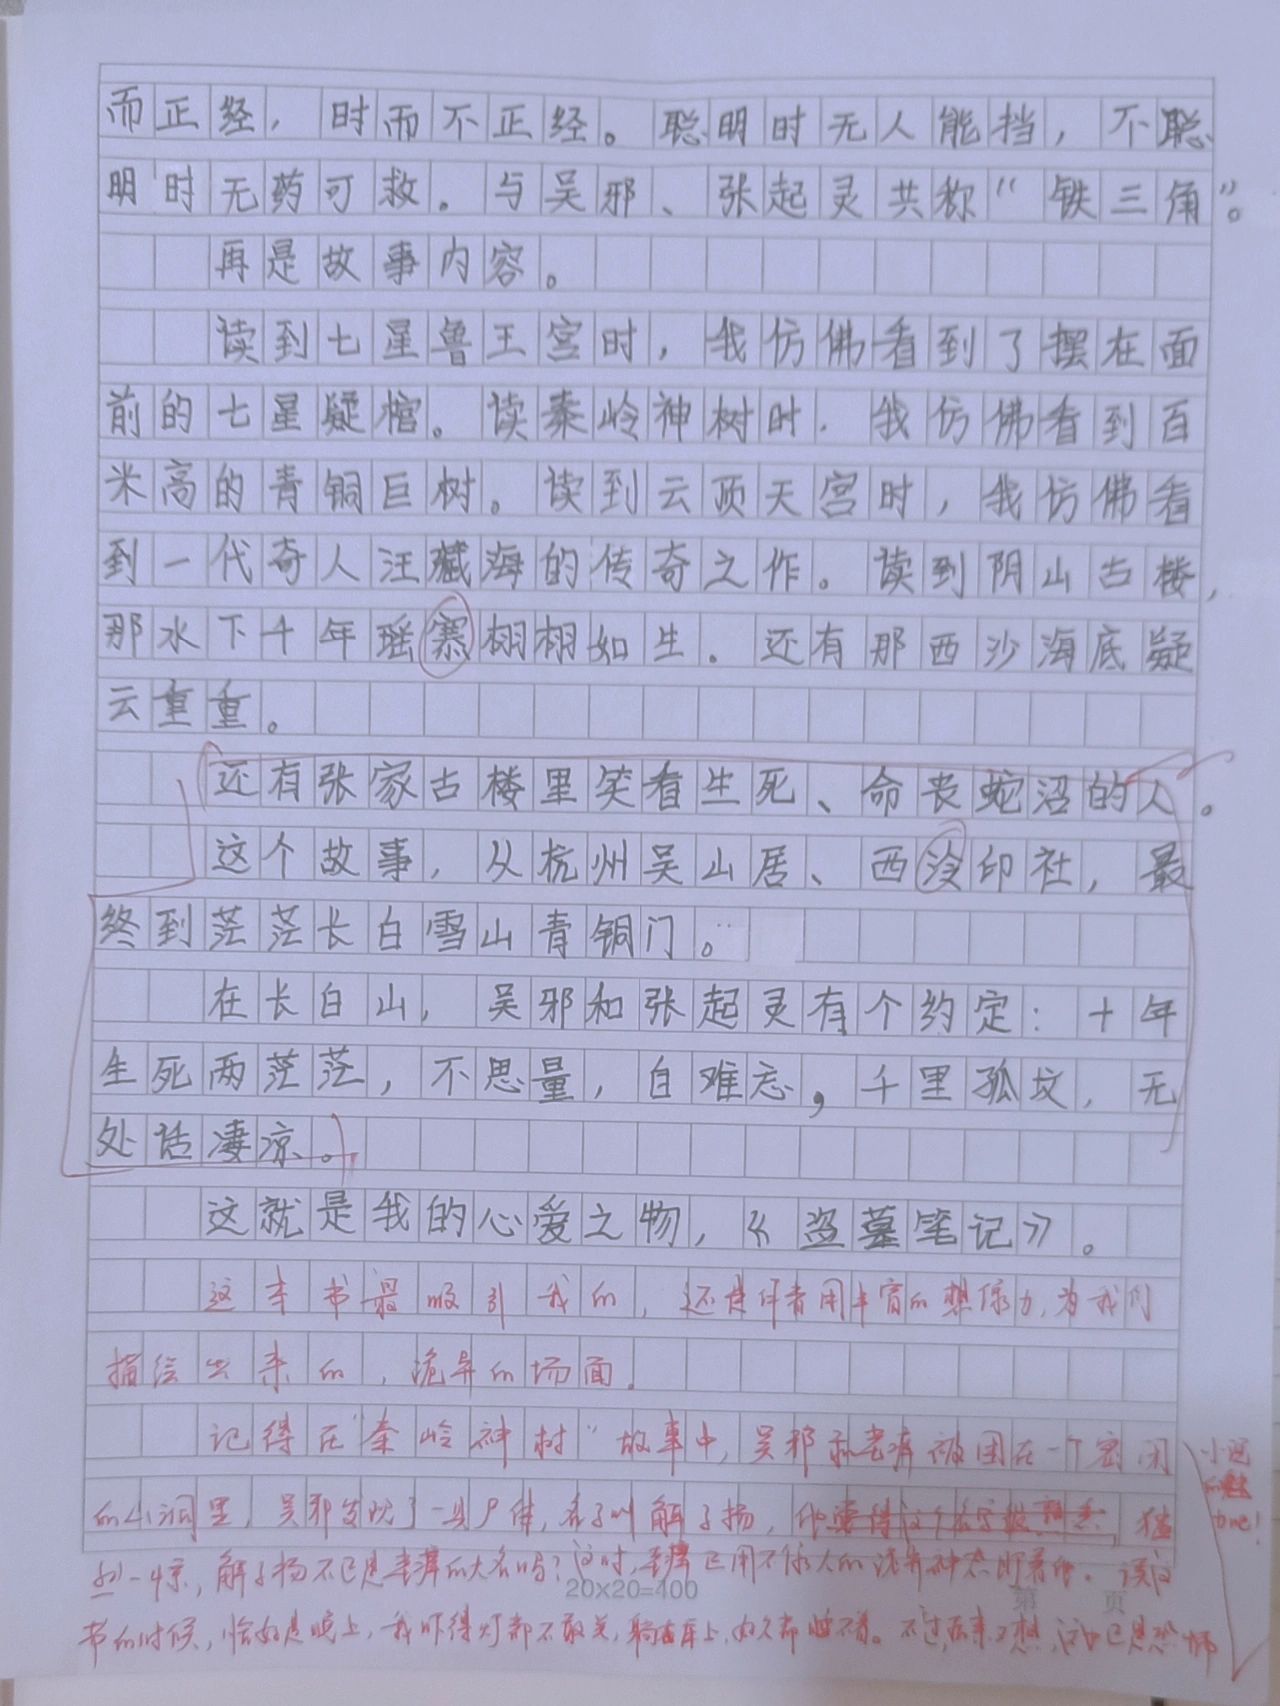 而正经，时而不正经。聪明时无人能挡，不聪
明时无药可救。与吴邪、张起灵共称“铁三角”。
再是故事内容。
读到七星鲁王宫时，我仿佛看到了摆在面
前的七星疑棺。读秦岭神树时．我仿佛看到百
米高的青铜巨树。读到云顶天宫时，我仿佛看
到一代奇人汪藏海的传奇之作。读到阴山古楼，
那水下千年瑶寨栩栩如生．还有那西沙海底疑
云重重。
还有张家古楼里笑看生死、命丧蛇沼的人。
这个故事，从杭州吴山居、西泠印社，最
终到茫茫长白雪山青铜门。
在长白山，吴邪和张起灵有个约定：十年
生死两茫茫，不思量，自难忘，千里孤坟，无
处话凄凉。
这就是我的心爱之物，《盗墓笔记》。
这本书最吸引我的，还是作者用丰富的想像力，为我们
描绘出来的，诡异的场面．
记得在“秦岭神树”故事中，吴邪和老痒被困在一个密闭
的山洞里，吴邪发现了一具尸体，名子叫解子扬，猛
烈一惊，解子扬不正是老痒的大名吗？这时，老痒正用不像人的诡异神态盯着他。读这
20×20=400
第 页
书的时候，恰好是晚上，我吓得灯都不敢关，躺在床上，好久都睡不着。不过后来又想，这也正是恐怖
小说
的魅
力